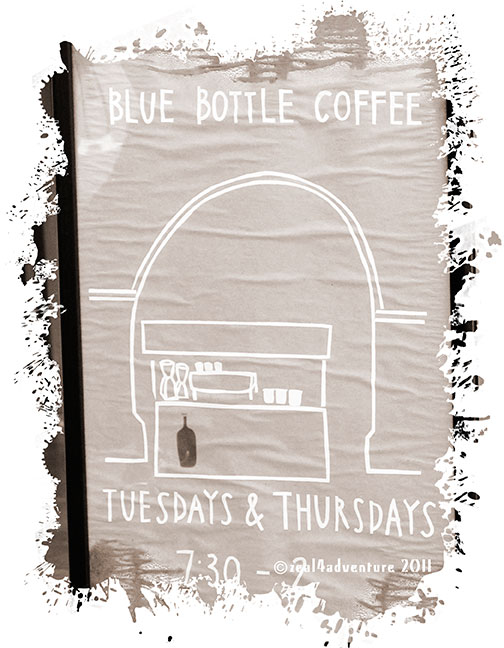 BLUE BOTTLE COFFEE
TUESDAYS & THURSDAYS
7:30 - 2
©zeal4adventure 2011